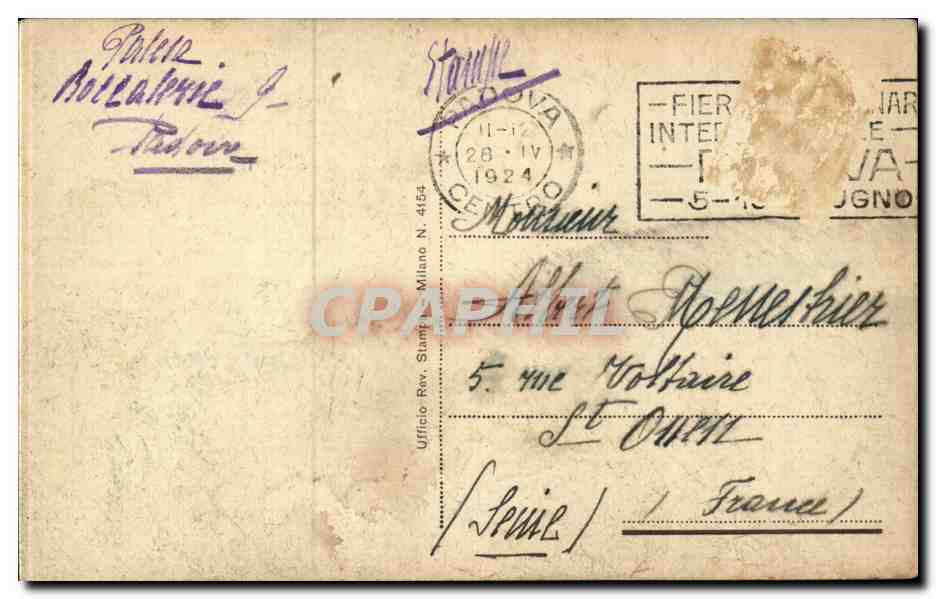 Boccalerie 9
Padova
Stampe
PADOVA
11-12
28 · IV
1924
CENTRO
FIER NAR
INTER E
VA
5-1 UGNO
Ufficio Rev. Stampa Milano N. 4154
Monsieur
Albert Menneshier
5. rue Voltaire
St Ouen
(Seine) (France)
CPAPHIL